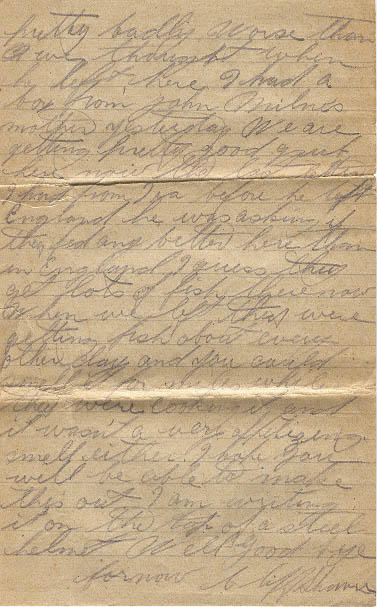 pretty badly worse than
we thought when
he left here I had a
box from John Milnes
mother yesterday We are
getting pretty good grub
here now the last letter
I had from Ira before he left
England he was asking if
they fed any better here than
in England I guess they
get lots of fish there now
When we left they were
getting fish about every
other day and you could
smell it for miles while
they were cooking it and
it wasn't a very appetizing
smell either I hope you
will be able to make
this out I am writing
it on the top of a steel
helmet Well good bye
for now Cliff